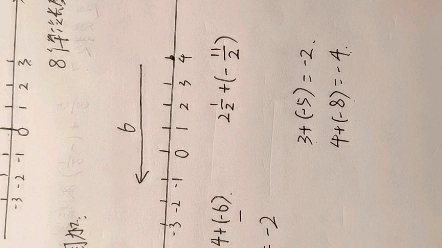 -3 -2 -1 0 1 2 3
6
-3 -2 -1 0 1 2 3 4
4+(-6). 2½+(-11/2)
= -2
3+(-5)=-2.
4+(-8)=-4.